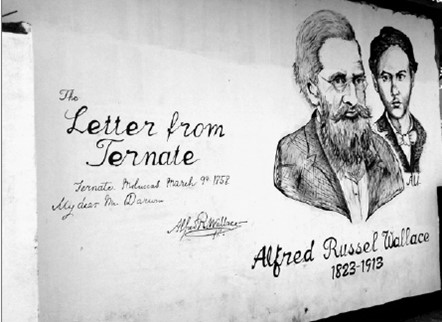 The
Letter from
Ternate
Ternate, Moluccas, March 9th 1858
My dear Mr. Darwin
Alfred R. Wallace
ALI
Alfred Russel Wallace
1823-1913